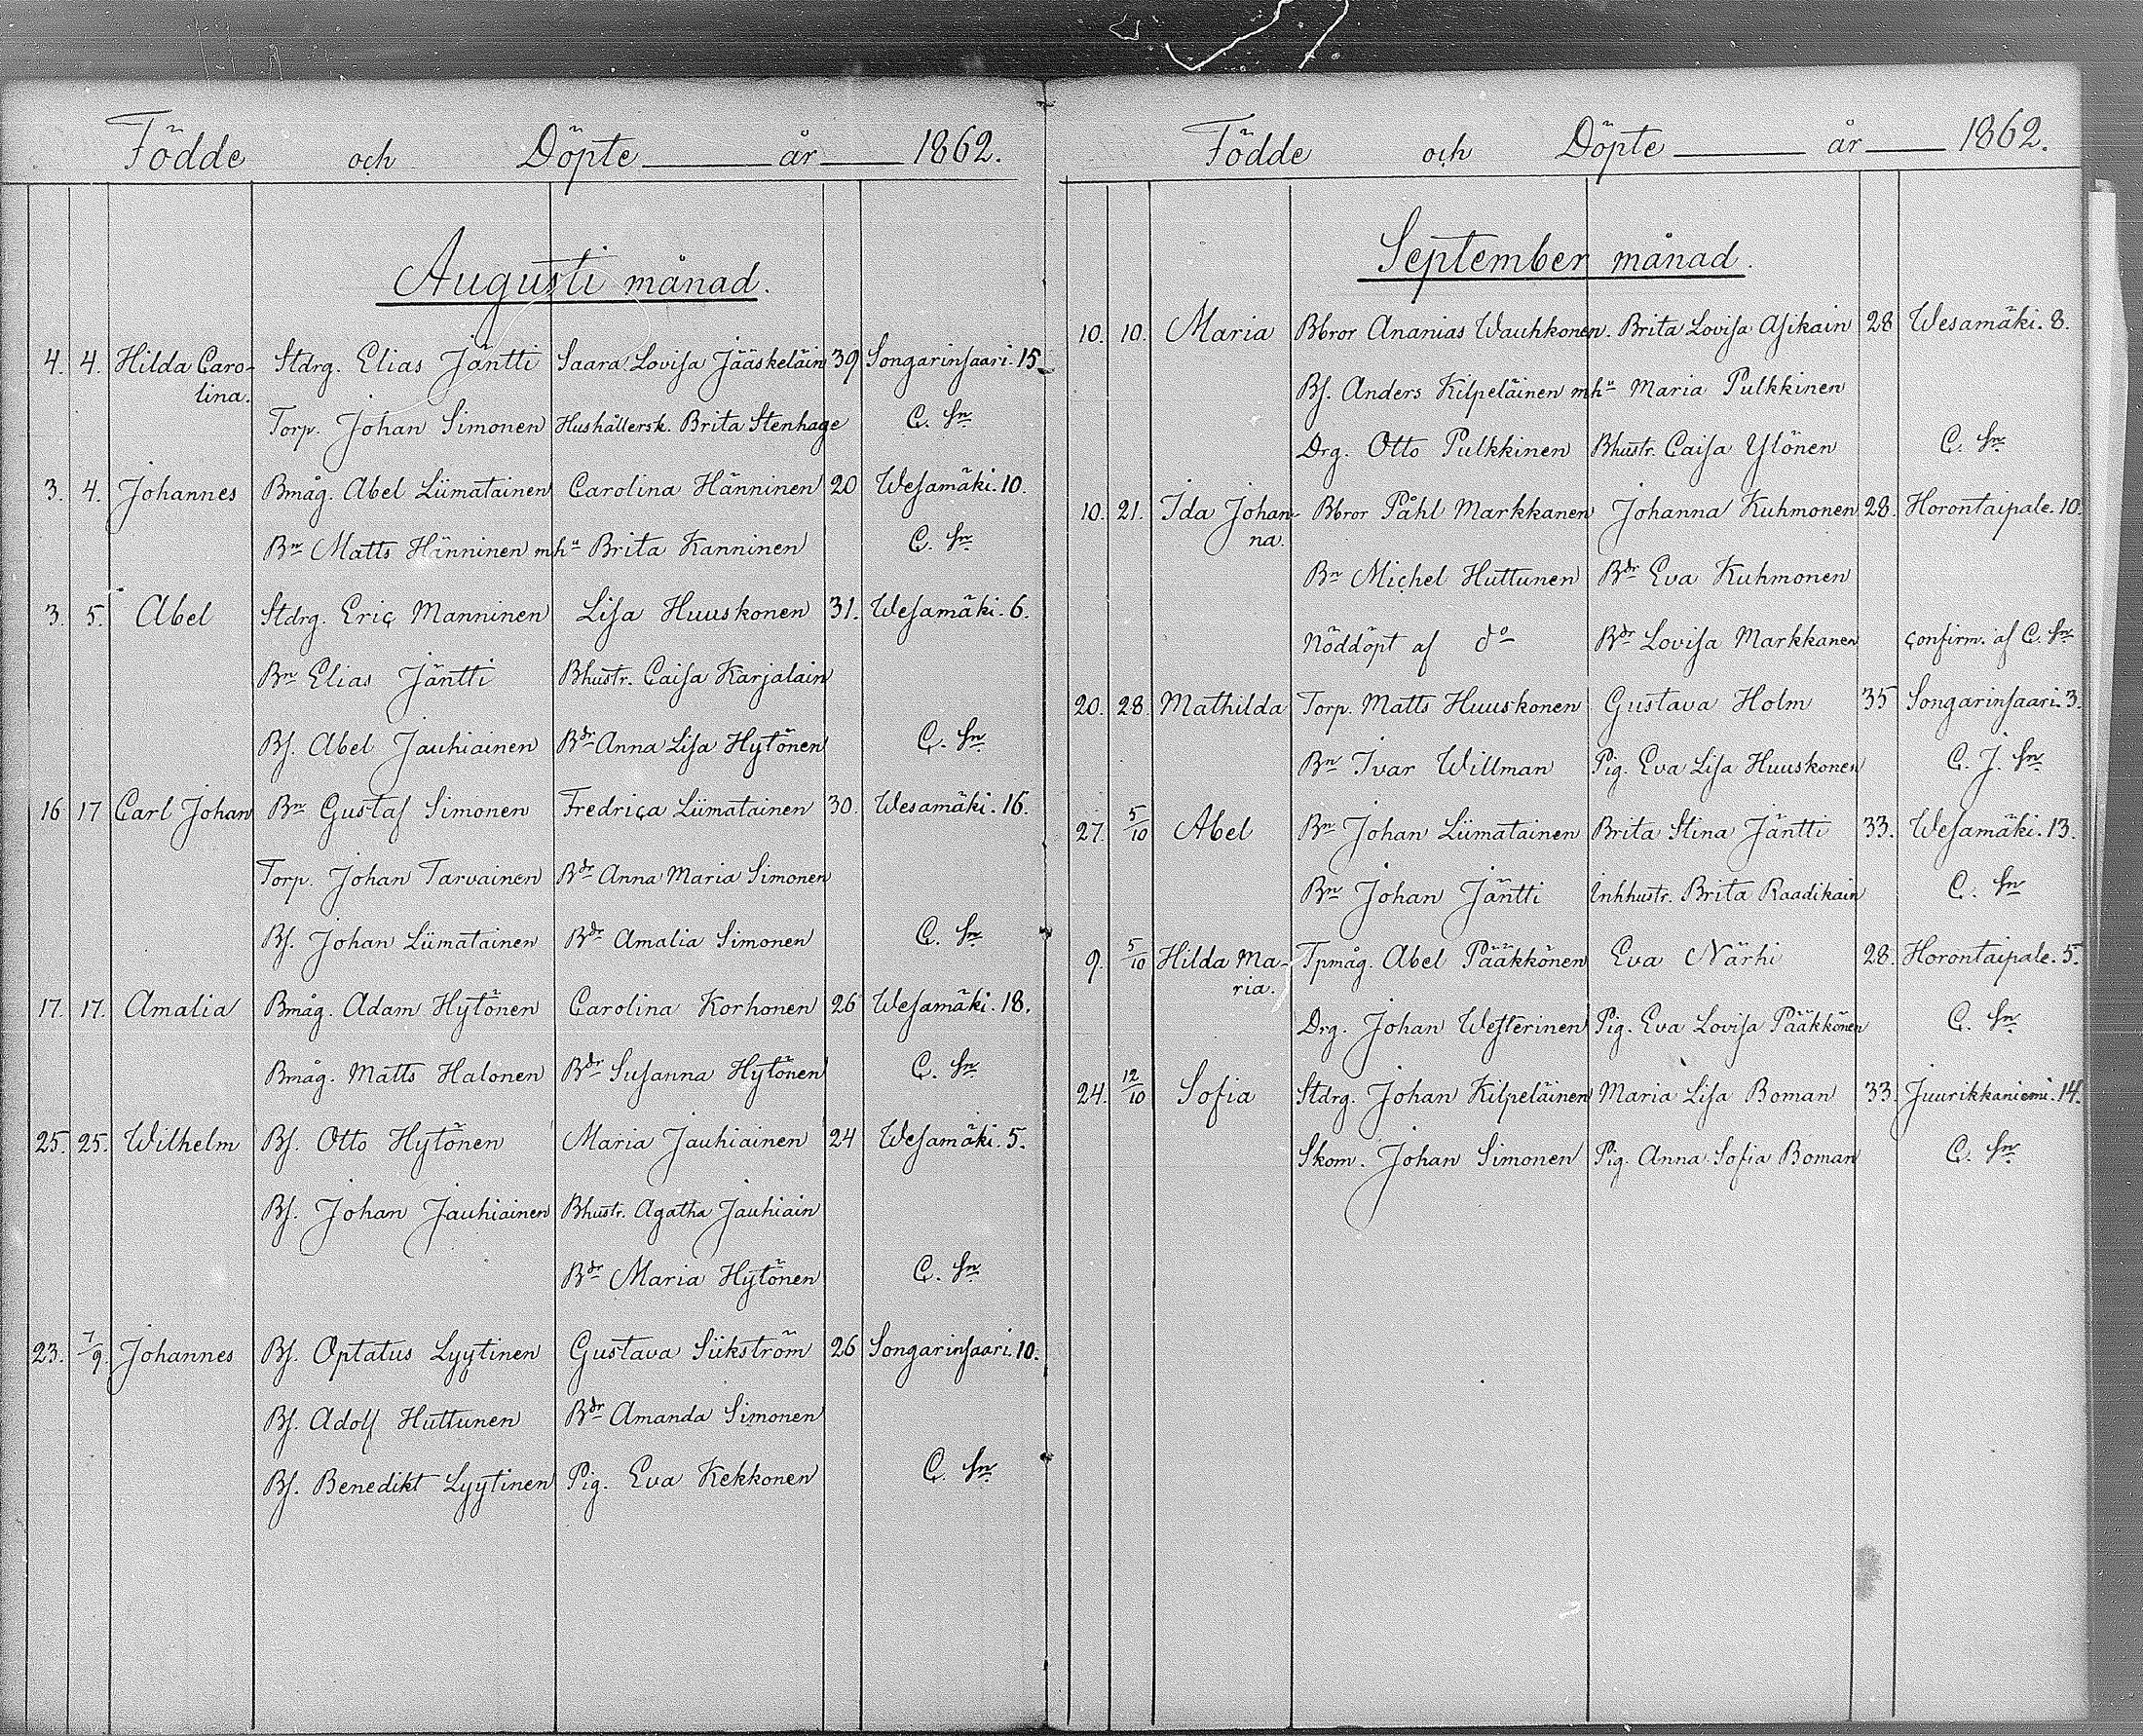 Födde och Döpte år 1862.
Augusti månad.
4. 4. Hilda Caro- Stdrg. Elias Jäntti Saara Lovisa Jääskeläin 39 Songarinsaari. 15.
lina.
Torp. Johan Simonen Hushållersk. Brita Stenhage C. Sn.
3. 4. Johannes Bmåg. Abel Liimatainen Carolina Hänninen 20 Wesamäki. 10.
Bn Matts Hänninen mhu Brita Kanninen C. Sn.
3. 5. Abel Stdrg. Eric Manninen Lisa Huuskonen 31. Wesamäki. 6.
Bn Elias Jäntti Bhustr. Caisa Karjalain
Bs. Abel Jauhiainen Bdr Anna Lisa Hytönen C. Sn.
16 17 Carl Johan Bn Gustaf Simonen Fredrica Liimatainen 30. Wesamäki. 16.
Torp. Johan Tarvainen Bdr Anna Maria Simonen
Bs. Johan Liimatainen Bdr Amalia Simonen C. Sn.
17. 17. Amalia Bmåg. Adam Hytönen Carolina Korhonen 26 Wesamäki. 18.
Bmåg. Matts Halonen Bdr Susanna Hytönen C. Sn.
25. 25. Wilhelm Bs. Otto Hytönen Maria Jauhiainen 24 Wesamäki. 5.
Bs. Johan Jauhiainen Bhustr. Agatha Jauhiain
Bdr Maria Hytönen C. Sn.
23. 7/9. Johannes Bs. Optatus Lyytinen Gustava Siikström 26 Songarinsaari. 10.
Bs. Adolf Huttunen Bdr Amanda Simonen
Bs. Benedikt Lyytinen Pig. Eva Kekkonen C. Sn.
Födde och Döpte år 1862.
September månad.
10. 10. Maria Bbror Ananias Wauhkonen. Brita Lovisa Asikain 28 Wesamäki. 8.
Bs. Anders Kilpeläinen mhu Maria Pulkkinen
Drg. Otto Pulkkinen Bhustr. Caisa Ylönen C. Sn.
10. 21. Ida Johan- Bbror Påhl Markkanen Johanna Kuhmonen 28. Horontaipale. 10.
na.
Bn Michel Huttunen Bdr Eva Kuhmonen
Nöddöpt af do Bdr Lovisa Markkanen confirm. af C. Sn.
20. 28. Mathilda Torp. Matts Huuskonen Gustava Holm 35 Songarinsaari. 3.
Bn Ivar Willman Pig. Eva Lisa Huuskonen C. J. Sn.
27. 5/10 Abel Bn Johan Liimatainen Brita Stina Jäntti 33. Wesamäki. 13.
Bn Johan Jäntti Inhhustr. Brita Raadikain C. Sn
9. 5/10 Hilda Ma- Tpmåg. Abel Pääkkönen Eva Närhi 28. Horontaipale. 5.
ria.
Drg. Johan Westerinen Pig. Eva Lovisa Pääkkönen C. Sn.
24. 12/10 Sofia Stdrg. Johan Kilpeläinen Maria Lisa Boman 33. Juurikkaniemi. 14.
Skom. Johan Simonen Pig. Anna Sofia Boman C. Sn.